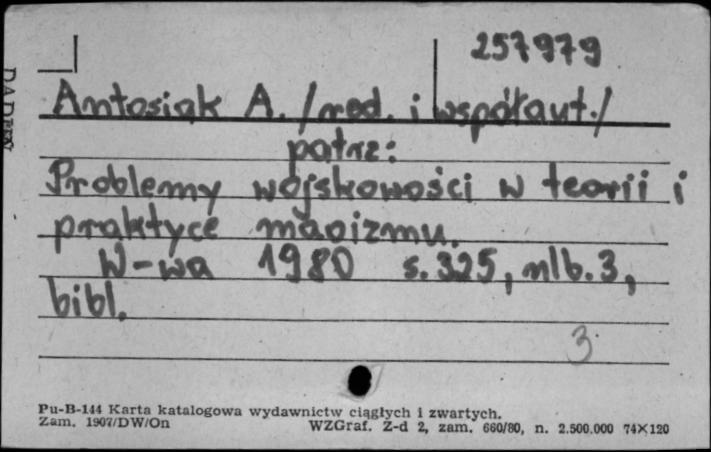 257979
Antosiak A. /red. i współaut./
patrz:
Problemy wojskowości w teorii i
praktyce maoizmu.
W-wa 1980 s. 325, nlb. 3,
bibl.
3
Pu-B-144 Karta katalogowa wydawnictw ciągłych i zwartych.
Zam. 1907/DW/On WZGraf. Z-d 2, zam. 660/80, n. 2.500.000 74×120